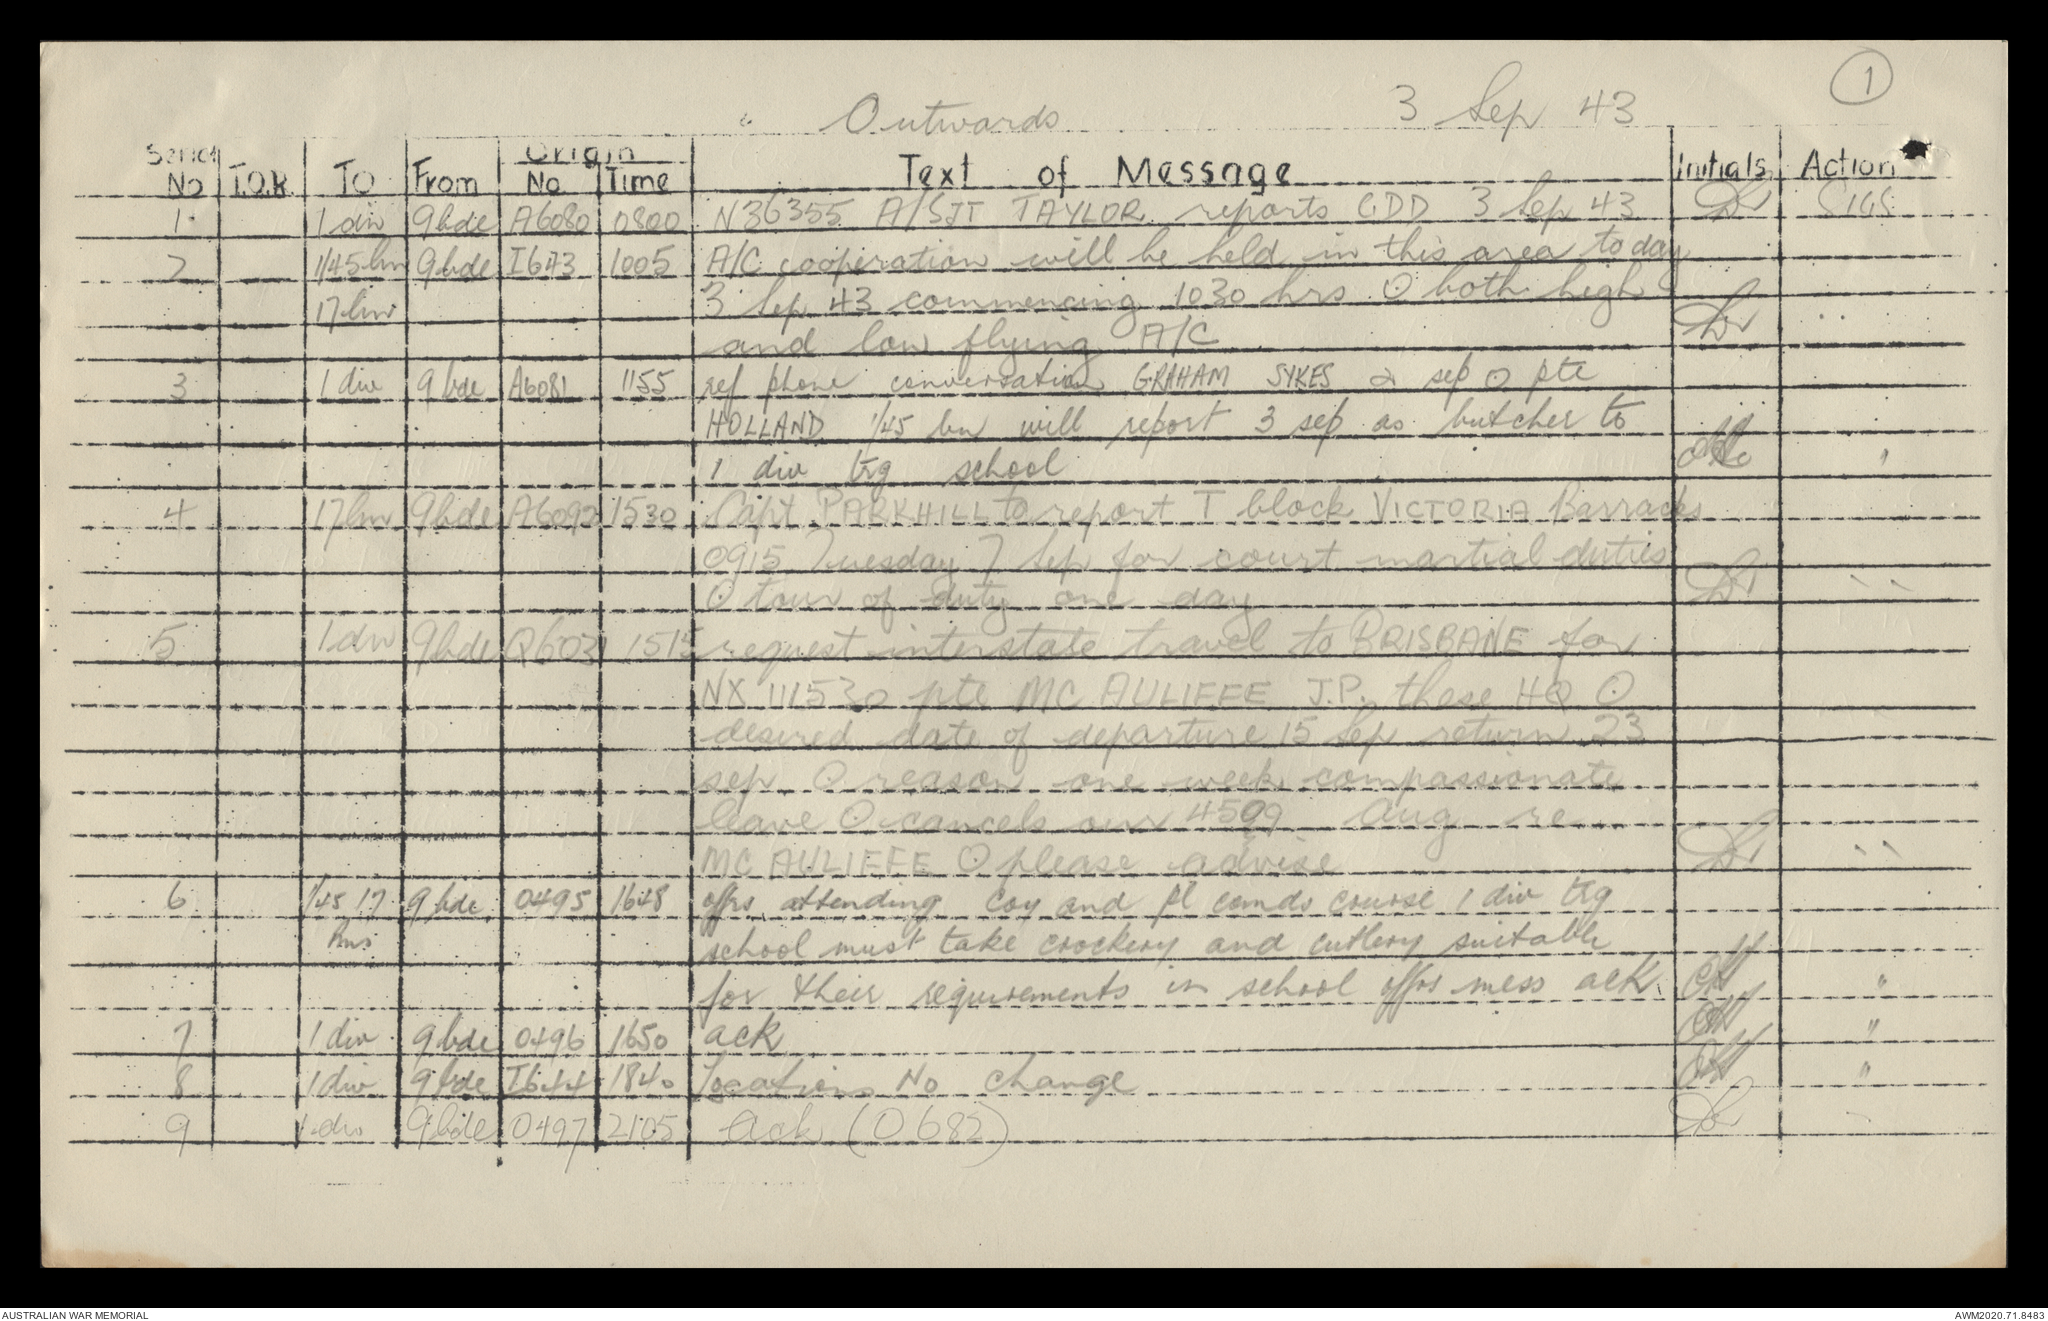 1
Outwards 3 Sep 43
Serial No T.O.R. TO From Origin No Time Text of Message Initials Action
1 1 div 9 bde A6080 0800 N36355 A/SJT TAYLOR reports GDD 3 Sep 43 SIGS
2 1/45 bn 9 bde I643 1005 A/C cooperation will be held in this area today
17 bn 3 Sep 43 commencing 1030 hrs O both high
and low flying A/C
3 1 div 9 bde A6081 1155 ref phone conversation GRAHAM SYKES 2 sep O pte
HOLLAND 1/45 bn will report 3 sep as butcher to
1 div trg school "
4 17 bn 9 bde A6092 1530 Capt PARKHILL to report T block VICTORIA Barracks
0915 Tuesday 7 Sep for court martial duties
O tour of duty one day "
5 1 div 9 bde Q6031 1515 request interstate travel to BRISBANE for
NX 111530 pte MC AULIFFE J.P. these HQ O
desired date of departure 15 Sep return 23
sep O reason one week compassionate
leave O cancels our 4509 Aug re
MC AULIFFE O please advise "
6 1/45 17 9 bde 0495 1648 offrs attending coy and pl comds course 1 div trg
bns school must take crockery and cutlery suitable
for their requirements in school offrs mess ack "
7 1 div 9 bde 0496 1650 ack "
8 1 div 9 bde I644 1840 Locations No change "
9 1 div 9 bde 0497 2105 Ack (O 682)
AUSTRALIAN WAR MEMORIAL AWM2020.71.8483